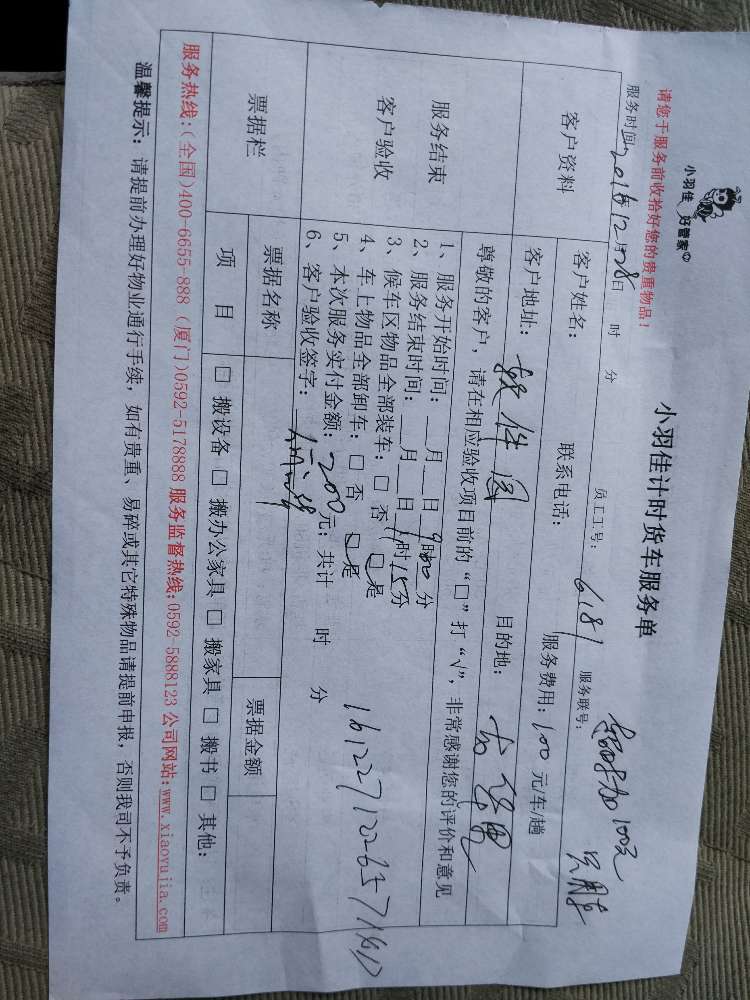 小羽佳 好管家
小羽佳计时货车服务单
请您于服务前收拾好您的贵重物品！
服务时间：2016年12月28日 时 分 员工工号：6181 服务联号：
加100元
客户资料
客户姓名： 联系电话： 服务费用：100元/车/趟
客户地址：软件园 目的地：
服务结束
客户验收
尊敬的客户，请在相应验收项目前的“□”打“√”，非常感谢您的评价和意见
1、服务开始时间：__月__日9时00分
2、服务结束时间：__月__日11时15分
3、候车区物品全部装车：□ 否 □ 是
4、车上物品全部卸车：□ 否 □ 是
5、本次服务实付金额：200元；共计 时 分
6、客户验收签字：
票据栏
票据名称 票据金额
项 目 □ 搬设备 □ 搬办公家具 □ 搬家具 □ 搬书 □ 其他：
服务热线：(全国)400-6655-888 (厦门)0592-5178888 服务监督热线：0592-5888123 公司网站：www.xiaoyujia.com
温馨提示：请提前办理好物业通行手续，如有贵重、易碎或其它特殊物品请提前申报，否则我司不予负责。